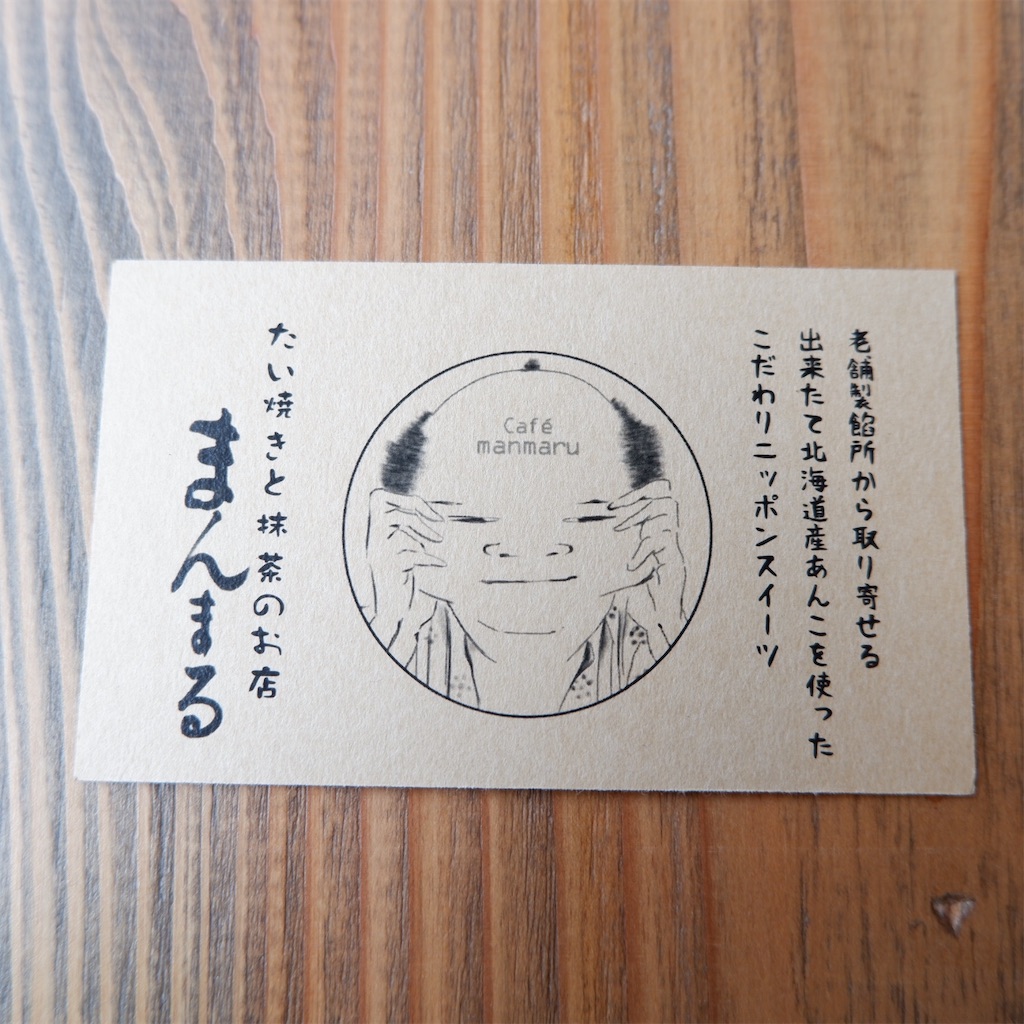 老舗製餡所から取り寄せる
出来たて北海道産あんこを使った
こだわりニッポンスイーツ
Café
manmaru
たい焼きと抹茶のお店
まんまる